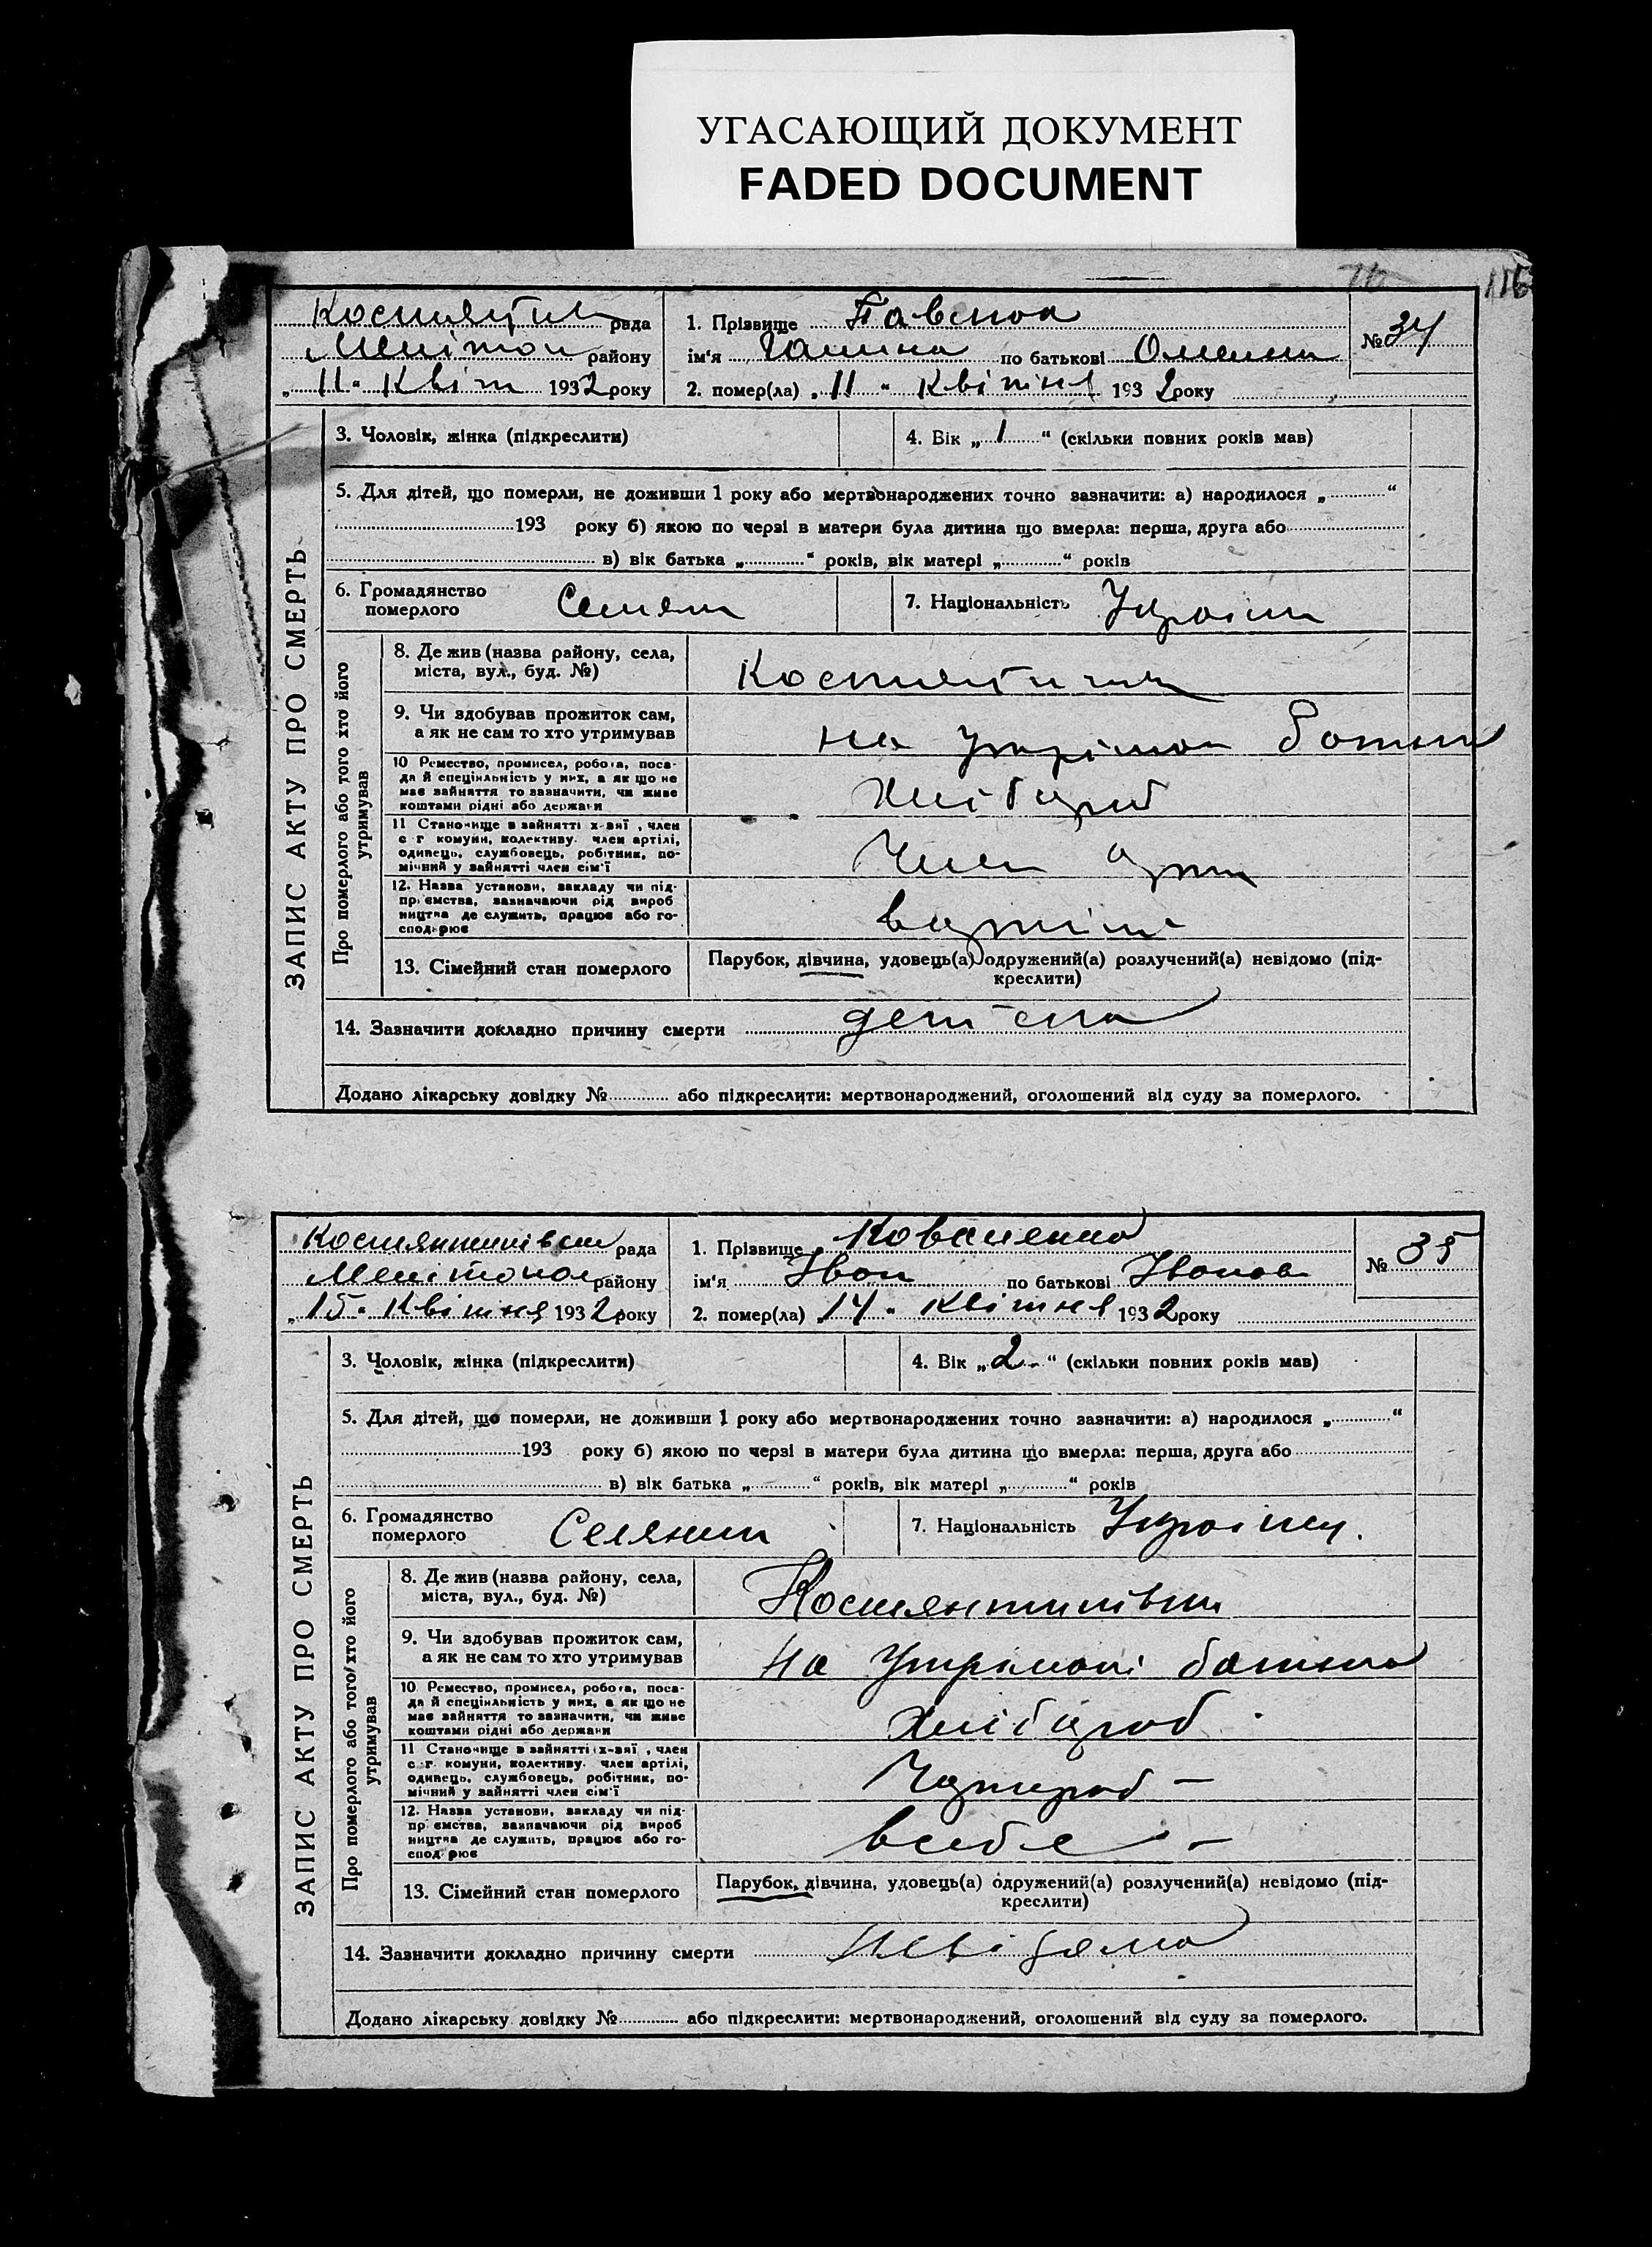 УГАСАЮЩИЙ ДОКУМЕНТ
FADED DOCUMENT
116
рада
району
„11" Квіт 1932 року
1. Прізвище
ім'я Галина по батькові
2. помер(ла) „11" Квітня 1932 року
№ 34
ЗАПИС АКТУ ПРО СМЕРТЬ
3. Чоловік, жінка (підкреслити)
4. Вік „1" (скільки повних років мав)
5. Для дітей, що померли, не доживши 1 року або мертвонароджених точно зазначити: а) народилося „ "
193 року б) якою по черзі в матери була дитина що вмерла: перша, друга або
в) вік батька „ " років, вік матері „ " років
6. Громадянство
померлого
Селян
7. Національність Україн
Про померлого або того хто його
утримував
8. Де жив (назва району, села,
міста, вул., буд. №)
9. Чи здобував прожиток сам,
а як не сам то хто утримував
на батька
10 Ремество, промисел, робота, поса-
да й спеціяльність у них, а як що не
має зайняття то зазначити, чи живе
коштами рідні або держави
Хлібороб
11 Становище в зайнятті х-вяї, член
с г комуни, колективу. член артілі,
одинець, службовець, робітник, по-
мічний у зайнятті член сім'ї
Член арт
12. Назва установи, закладу чи під-
приємства, зазначаючи рід вироб
ництва де служить, працює або го-
сподарює
в артілі
13. Сімейний стан померлого
Парубок, дівчина, удовець(а) одружений(а) розлучений(а) невідомо (під-
креслити)
14. Зазначити докладно причину смерти
Додано лікарську довідку № або підкреслити: мертвонароджений, оголошений від суду за померлого.
Костянтинівськ рада
Мелітопол району
„15" Квітня 1932 року
1. Прізвище Коваленко
ім'я Іван по батькові Іванов
2. помер(ла) „14" Квітня 1932 року
№ 35
ЗАПИС АКТУ ПРО СМЕРТЬ
3. Чоловік, жінка (підкреслити)
4. Вік „2" (скільки повних років мав)
5. Для дітей, що померли, не доживши 1 року або мертвонароджених точно зазначити: а) народилося „ "
193 року б) якою по черзі в матери була дитина що вмерла: перша, друга або
в) вік батька „ " років, вік матері „ " років
6. Громадянство
померлого
Селянин
7. Національність
Про померлого або того хто його
утримував
8. Де жив (назва району, села,
міста, вул., буд. №)
Костянтинівка
9. Чи здобував прожиток сам,
а як не сам то хто утримував
На утримані батька
10 Ремество, промисел, робота, поса-
да й спеціяльність у них, а як що не
має зайняття то зазначити, чи живе
коштами рідні або держави
Хлібороб
11 Становище в зайнятті х-вяї, член
с г. комуни, колективу. член артілі,
одинець, службовець, робітник, по-
мічний у зайнятті член сім'ї
12. Назва установи, закладу чи під-
приємства, зазначаючи рід вироб
ництва де служить, працює або го-
сподарює
в себе –
13. Сімейний стан померлого
Парубок, дівчина, удовець(а) одружений(а) розлучений(а) невідомо (під-
креслити)
14. Зазначити докладно причину смерти Невідома
Додано лікарську довідку № або підкреслити: мертвонароджений, оголошений від суду за померлого.